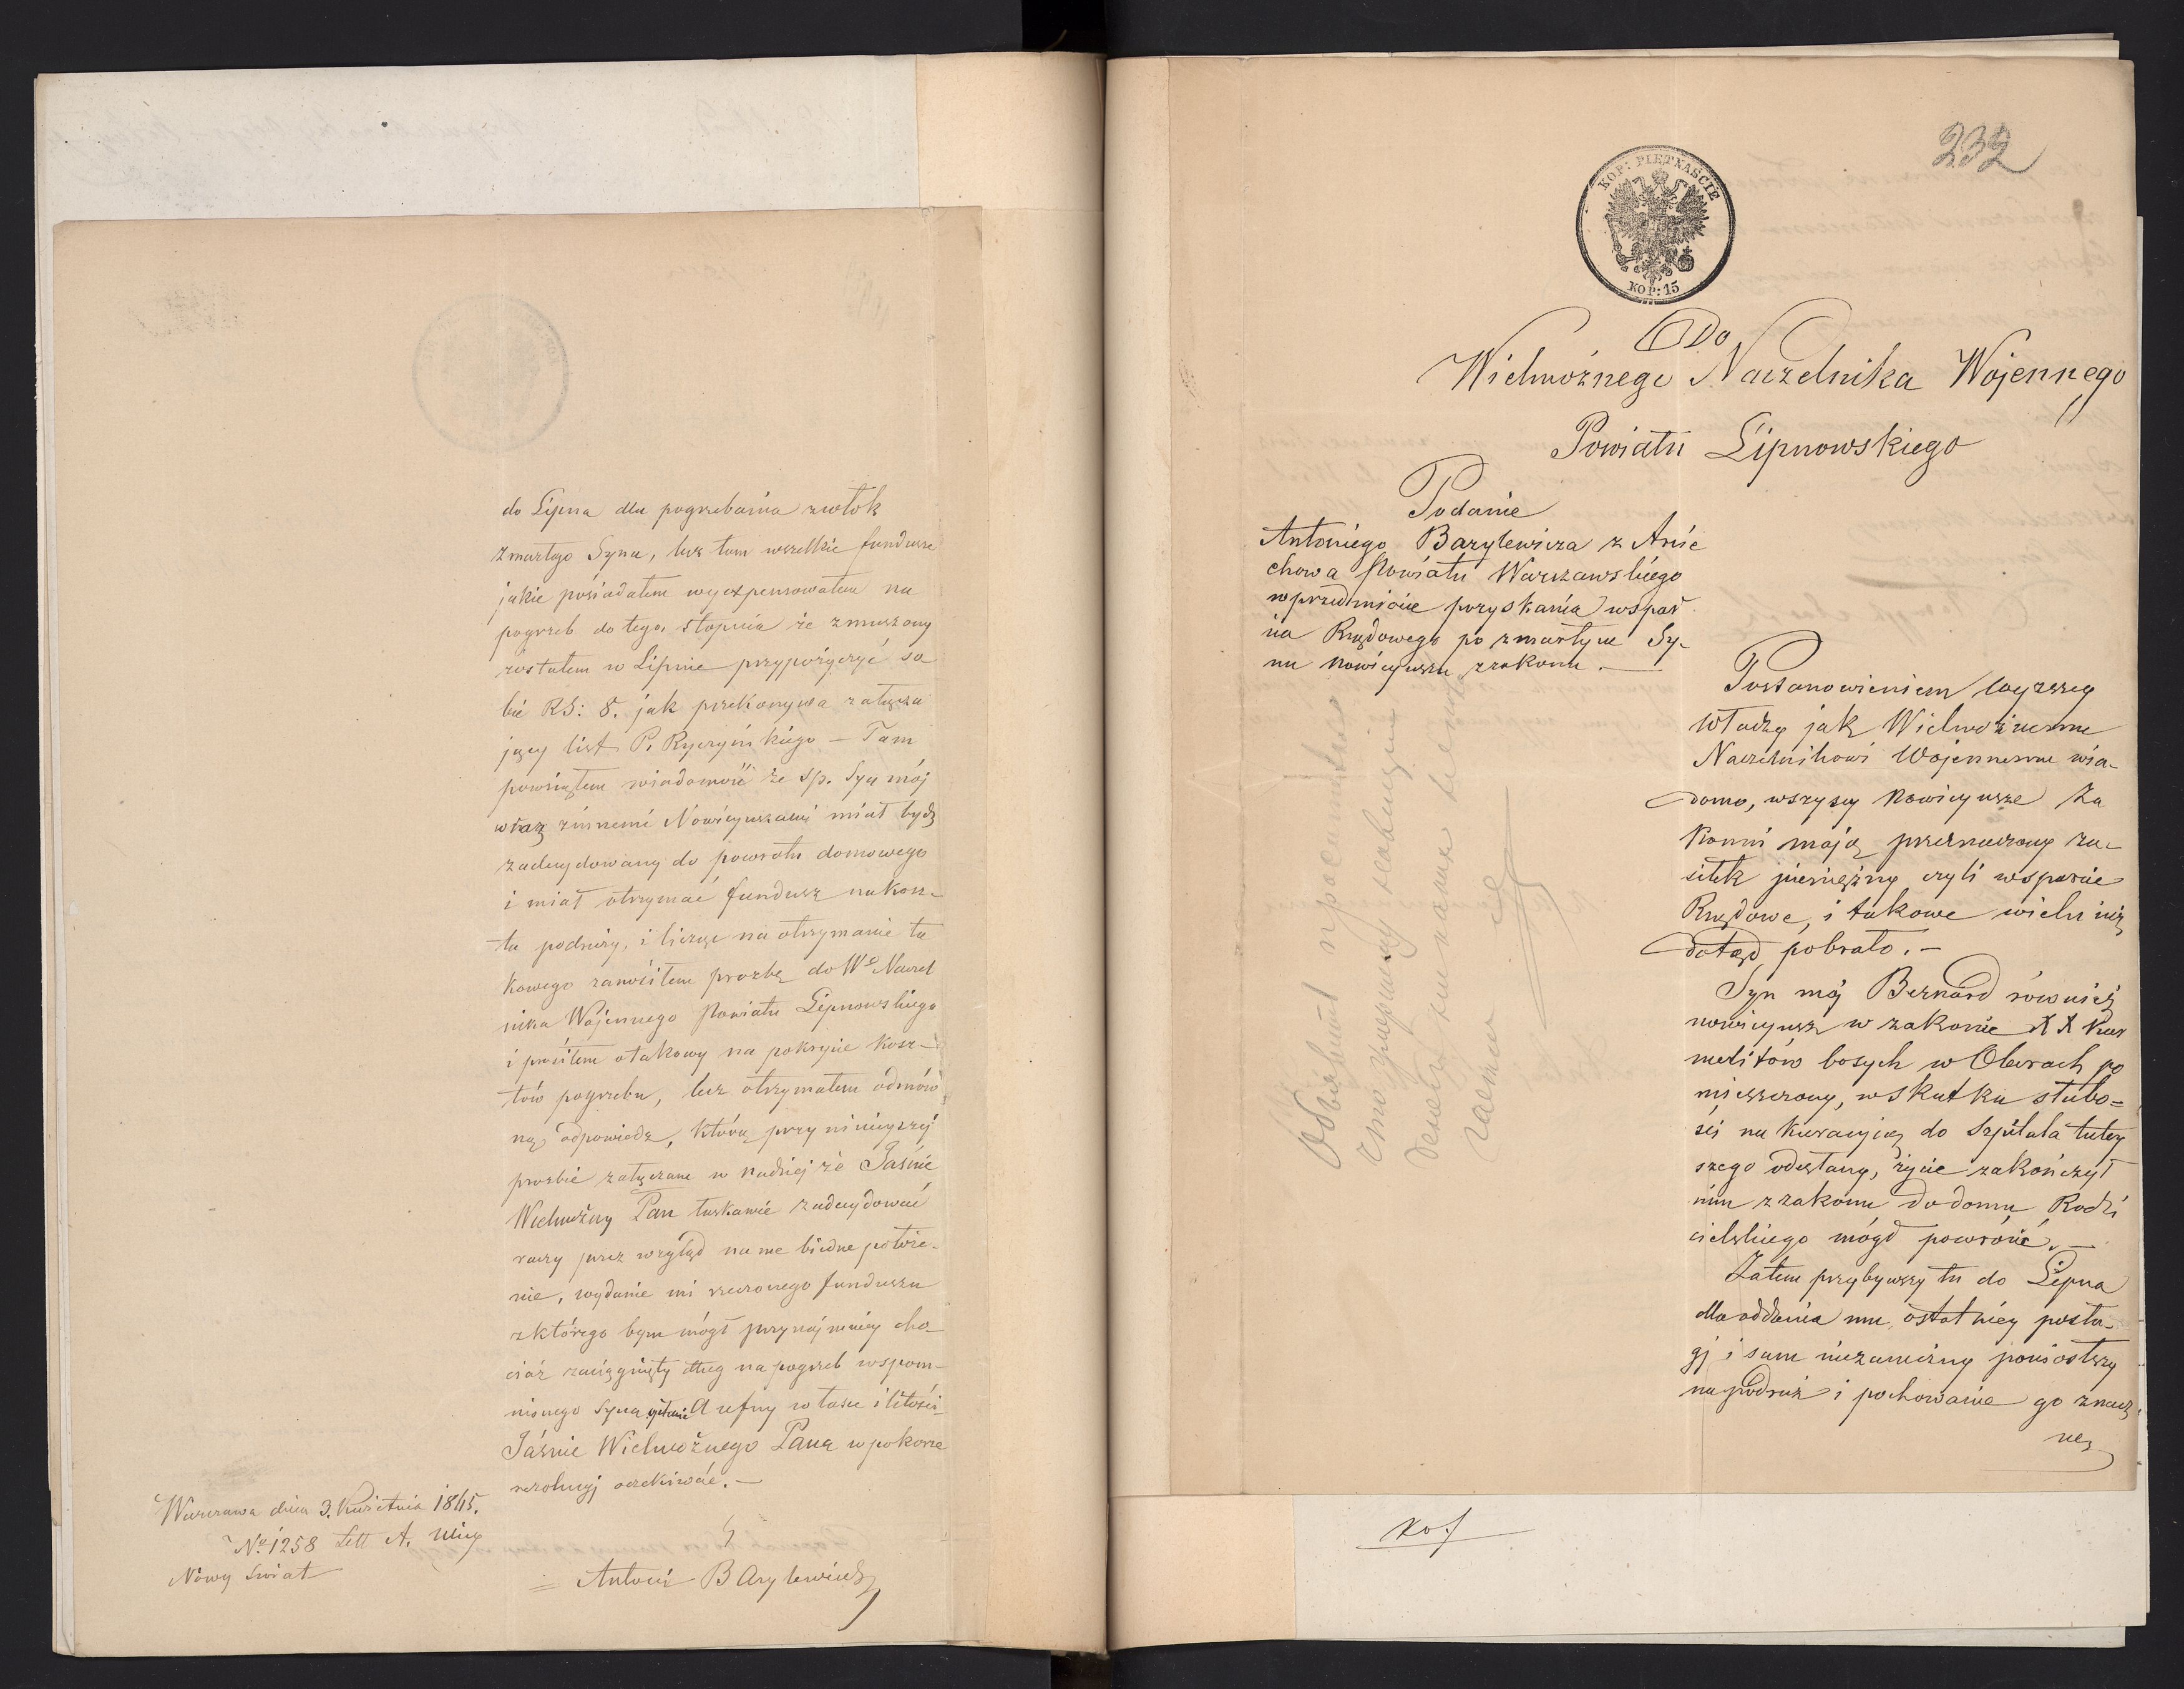 do Lipna dla pogrzebania zwłok
zmarłego Syna, lecz tam wszelkie fundusze
jakie posiadałem wyexpensowałem na
pogrzeb do tego stopnia że zmuszony
zostałem w Lipnie przypożyczyć so
bie RS: 8. jak przekonywa załącza
jący list P. Ryczyńskiego — Tam
powziąłem wiadomość że śp. Syn mój
wraz zinnemi Nowicyuszami miał bydź
zadecydowany do powrotu domowego
i miał otrzymać fundusz na kosz-
ta podróży, i licząc na otrzymanie ta
kowego zanosiłem prozbę do Wo Naczel
nika Wojennego Powiatu Lipnowskiego
i prosiłem otakowy na pokrycie kosz-
tów pogrzebu, lecz otrzymałem odmów
ną odpowiedz, którą przy niniejszej
prozbie załączam w nadziej że Jaśnie
Wielmożny Pan łaskawie zadecydować
raczy przez wzgląd na me biedne położe-
nie, wydanie mi rzeczonego funduszu
z którego bym mógł przynajmniey cho-
ciaż zaciągnięty dług na pogrzeb wspom-
nionego Syna A ufny w łasce i litości
Jaśnie Wielmożnego Pana w pokorze
rezolucyj oczekiwać. —
Warszawa dnia 3. Kwietnia 1865.
No 1258 Lett A. Ulica
Nowy Świat
Antoni BArylewicz
232
KOP: PIĘTNAŚCIE
KOP: 15
Do
Wielmożnego Naczelnika Wojennego
Powiatu Lipnowskiego
Podanie
Antoniego Barylewicza z
chowa Powiatu Warszawskiego
w przedmiocie pozyskania wspar
cia Rządowego po zmarłym Sy-
nu nowicyuszu zzakonu. —
Postanowieniem wyższey
władzy jak Wielmożnemu
Naczelnikowi Wojennemu wia-
domo, wszyscy Nowicyusze Za
konni mają przeznaczony za-
siłek pieniężny czyli wsparcie
Rządowe, i takowe wielu już
dotąd pobrało. —
Syn mój Bernard również
nowicyusz w zakonie XX Kar
melitów bosych w Oborach po
mieszczony, w skutku słabo=
ści na kuracyją do Szpitala tutey
szego odesłany, życie zakończył
nim z zakonu do domu Rodzi
cielskiego mógł powrócić. —
Zatem przybywszy tu do Lipna
dla oddania mu ostatniey posłu-
gj i sam niezamożny poniosłszy
na podróż i pochowanie go znacz
ne